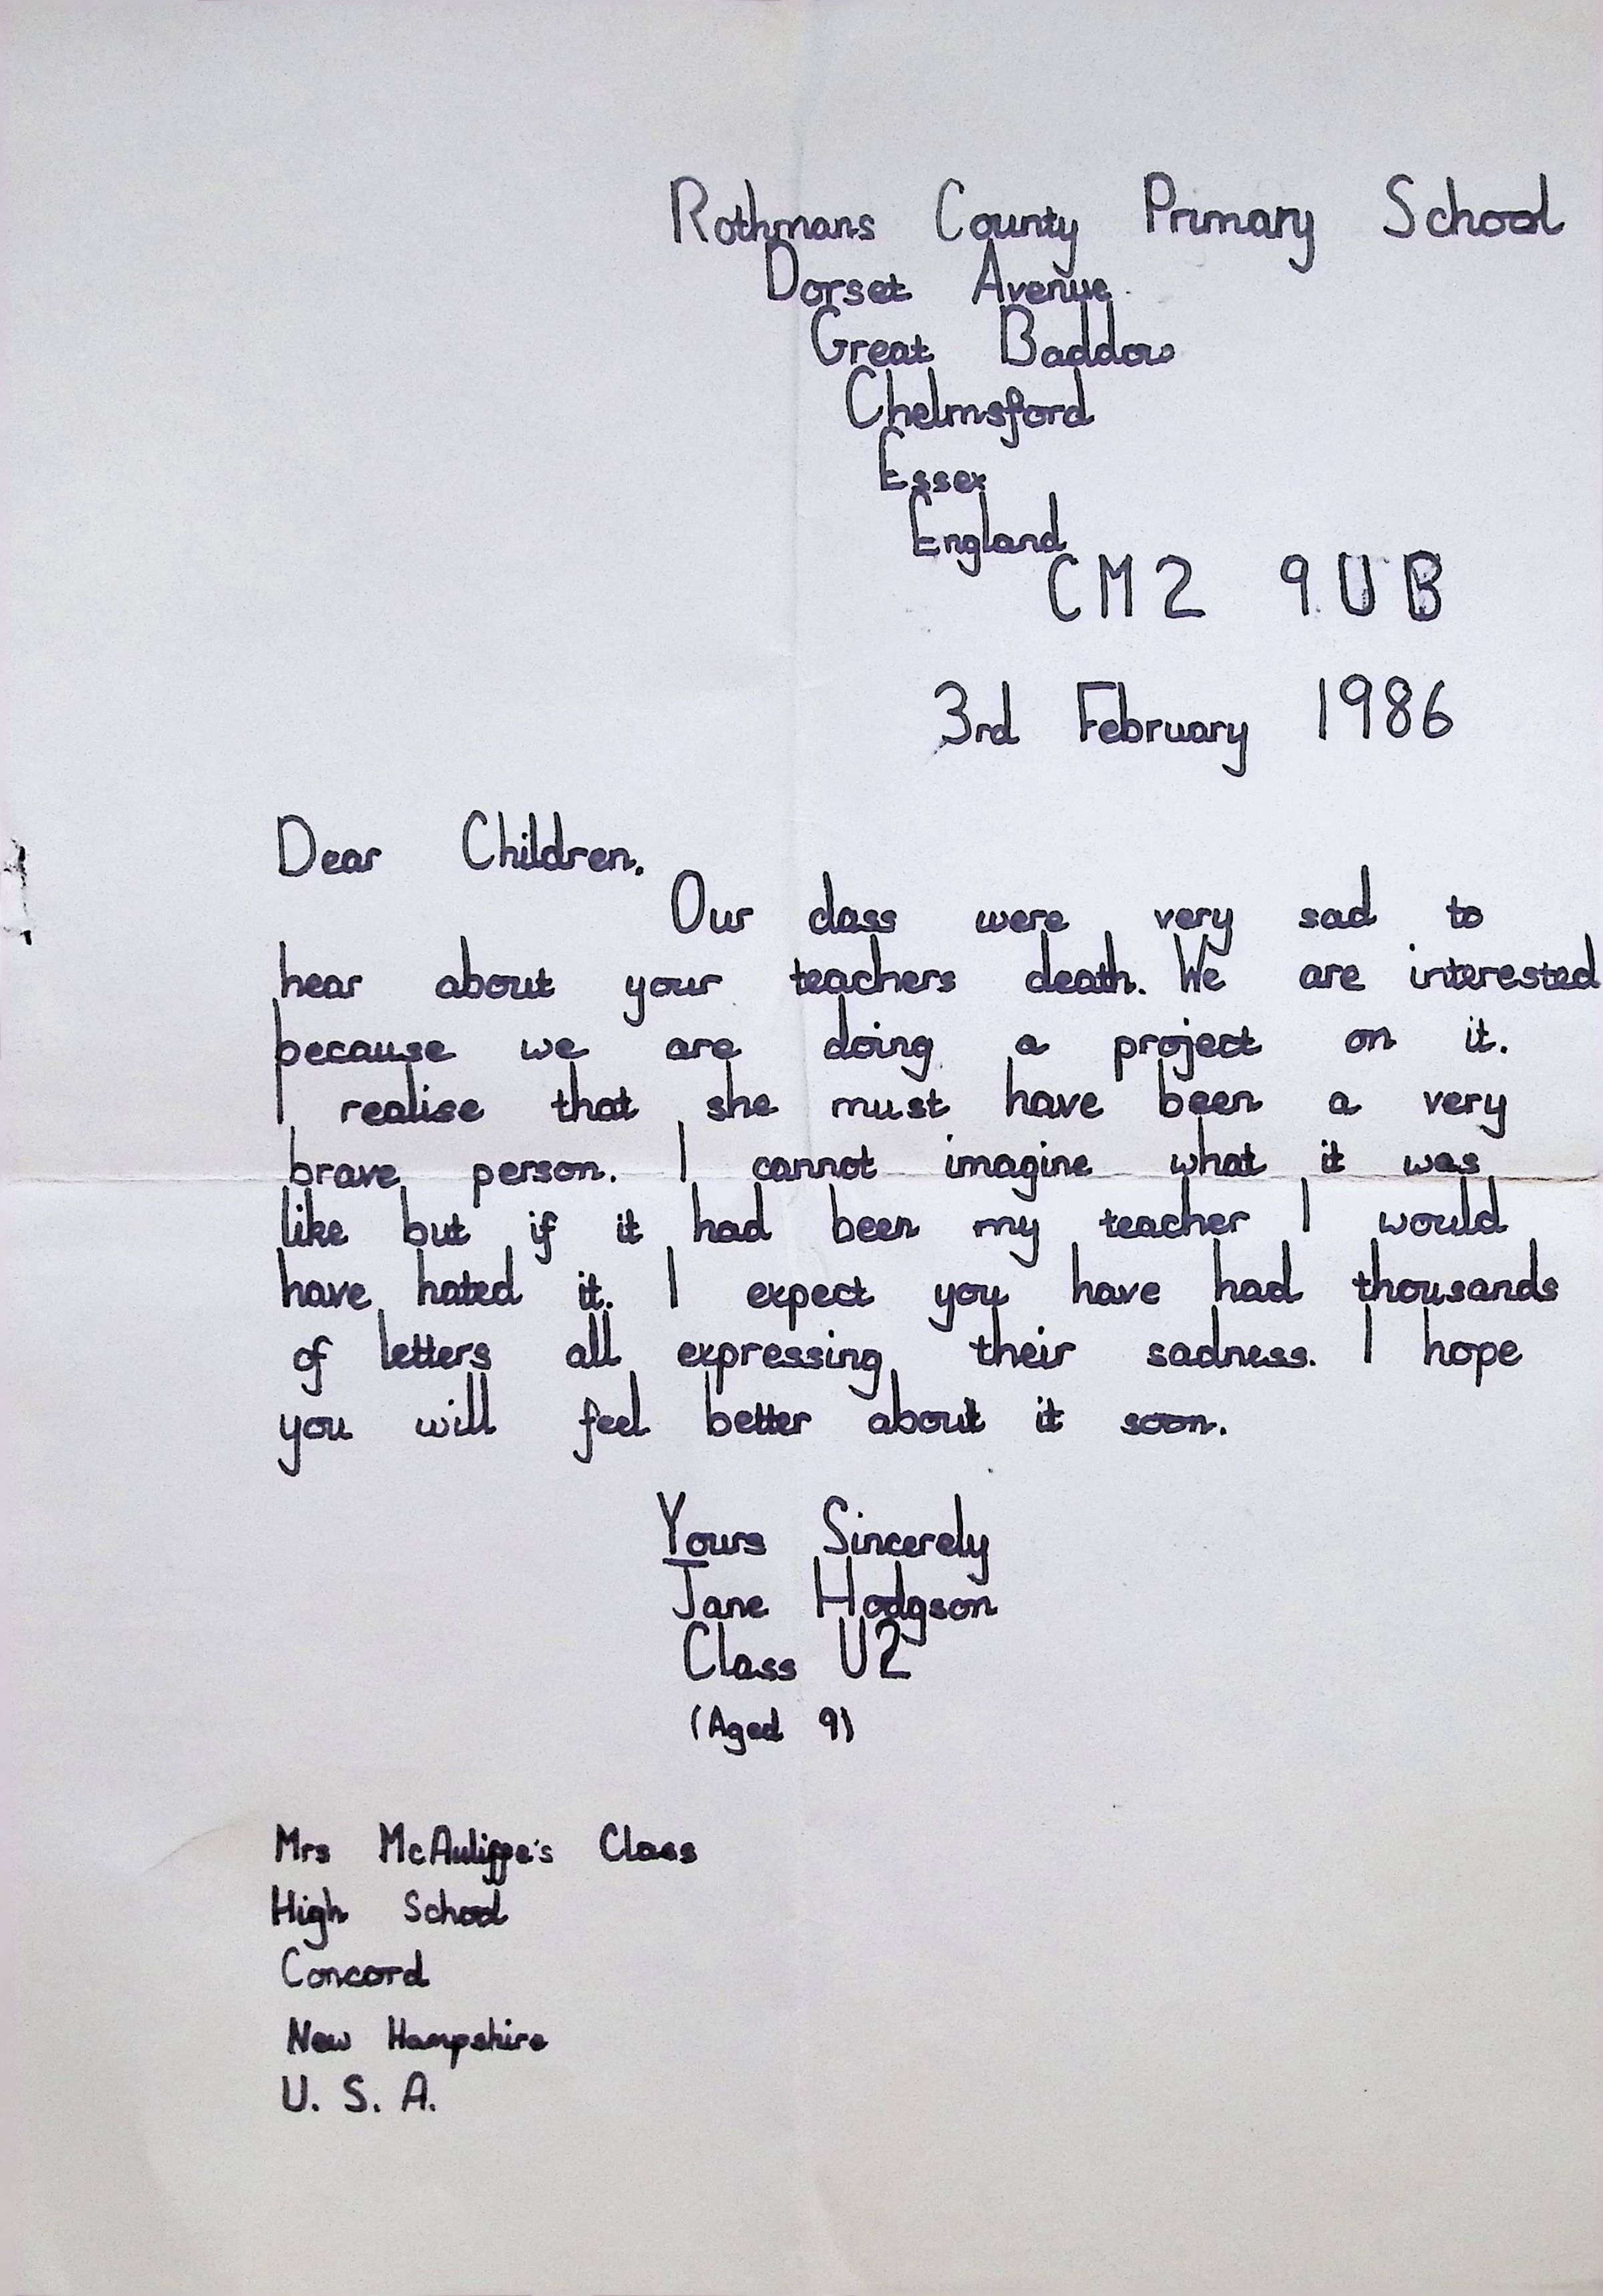 Rothmans County Primary School
Dorset Avenue
Great Baddow
Chelmsford
Essex
England
CM2 9UB
3rd February 1986
Dear Children.
Our class were very sad to
hear about your teachers death. We are interested
because we are doing a project on it.
I realise that she must have been a very
brave person. I cannot imagine what it was
like but if it had been my teacher I would
have hated it. I expect you have had thousands
of letters all expressing their sadness. I hope
you will feel better about it soon.
Yours Sincerely
Jane Hodgson
Class U2
(Aged 9)
Mrs McAuliffe's Class
High School
Concord
New Hampshire
U. S. A.